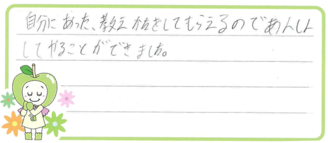 自分にあった、教え方をしてもらえるのであんしん
してやることができました。